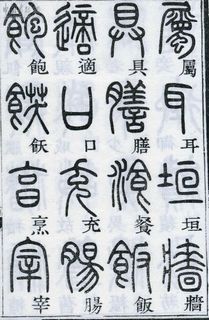 屬耳垣牆
具膳餐飯
適口充腸
飽飫烹宰